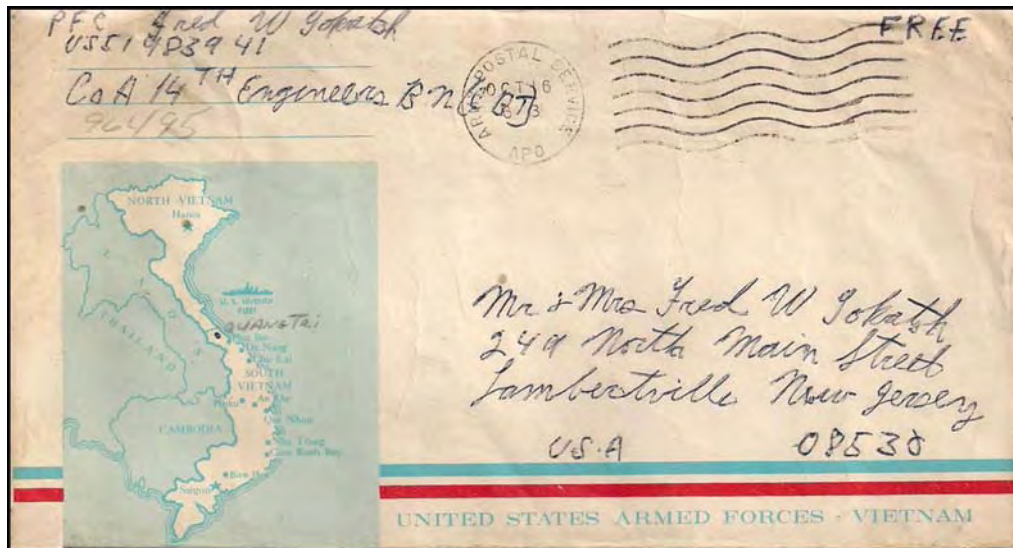 PFC Fred W Gokatsh
US51983941
FREE
Co A 14TH Engineers BN (CBT)
96495
ARMY POSTAL SERVICE
OCT 16
APO
NORTH VIETNAM
Hanoi
LAOS
THAILAND
U.S. SEVENTH
FLEET
QUANGTRI
Da Nang
Chu Lai
SOUTH
VIETNAM
An Khe
Pleiku
Qui Nhon
CAMBODIA
Nha Trang
Cam Ranh Bay
Saigon
Mr & Mrs Fred W Gokatsh
249 North Main Street
Lambertville New Jersey
USA 08530
UNITED STATES ARMED FORCES - VIETNAM